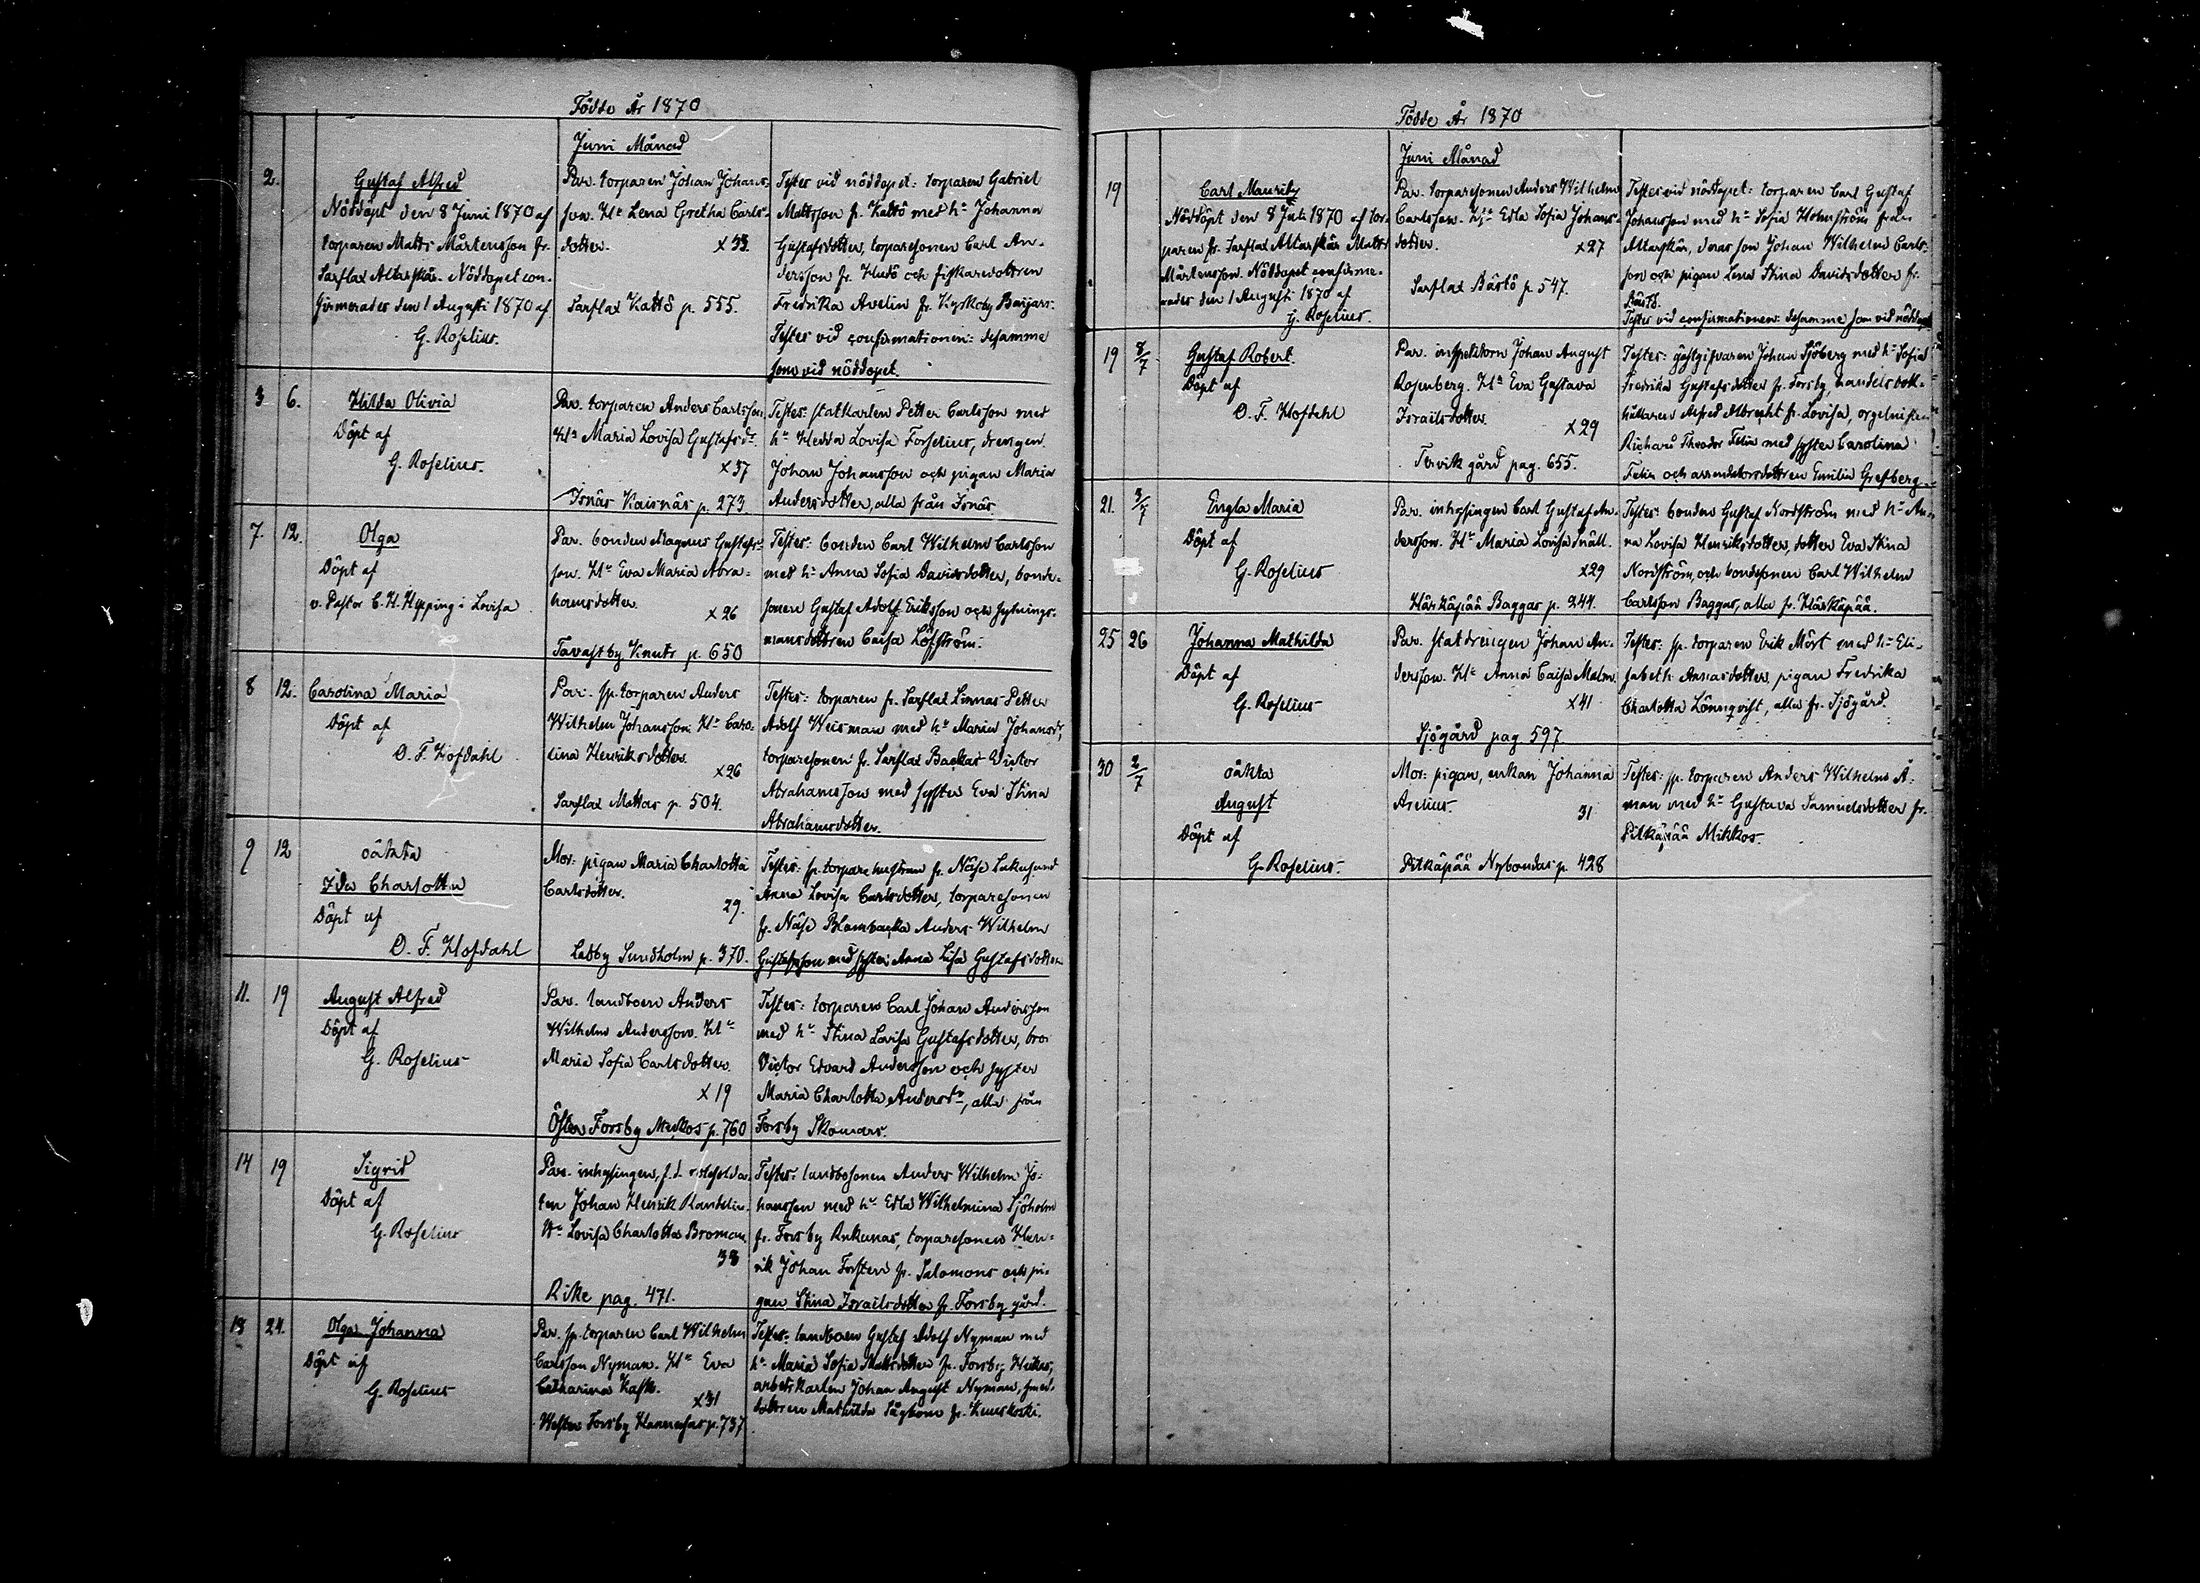 Födde År 1870
Juni Månad
2.
Gustaf Alfred
Nöddöpt den 8 Juni 1870 af
torparen Matts Mårtensson fr.
Sarflax Altarskär. Nöddopet con-
firmerades den 1 Augusti 1870 af
G. Roselius.
Par. torparen Johan Johans-
son. H:u Lena Gretha Carls-
dotter.
x 33.
Sarflax Kattö p. 555.
Testes vid nöddopet: torparen Gabriel
Mattsson fr. Kattö med h:u Johanna
Gustafsdotter, torparesonen Carl An-
dersson fr. Hudö och fiskaredottren
Fredrika Avelin fr. Kyrkoby Baijars.
Testes vid confirmationen: desamme
som vid nöddopet.
3 6.
Hilda Olivia
Döpt af
G. Roselius.
Par. torparen Anders Carlsson
H:u Maria Lovisa Gustafsd:r
x 37
Isnäs Kaisnäs p. 273
Testes: statkarlen Petter Carlsson med
h:u Hedda Lovisa Forselius, drengen
Johan Johansson och pigan Maria
Andersdotter, alla från Isnäs.
7. 12.
Olga
Döpt af
v. Pastor C. H. Hipping i Lovisa
Par. bonden Magnus Gustafs-
son. H:u Eva Maria Abra-
hamsdotter.
x 26
Tavastby Knuts p. 650
Testes: bonden Carl Wilhelm Carlsson
med h:u Anna Sofia Davidsdotter, bonde-
sonen Gustaf Adolf Eriksson och sytnings-
mansdottren Caisa Löfström.
8 12.
Carolina Maria
Döpt af
O. F. Hofdahl
Par. sp. torparen Anders
Wilhelm Johansson. H:u Caro-
lina Henriksdotter.
x 26
Sarflax Mattas p. 504.
Testes: torparen fr. Sarflax Linnas Petter
Adolf Weisman med h:u Maria Johansd:r,
torparesonen fr. Sarflax Backas Victor
Abrahamsson med syster Eva Stina
Abrahamsdotter.
9 12
oäkta
Ida Charlotta
Döpt af
O. F. Hofdahl
Mor: pigan Maria Charlotta
Carlsdotter.
29.
Labby Sundholm p. 370.
Testes: sp. torparehustrun fr. Näse
Anna Lovisa Carlsdotter, torparesonen
fr. Näse Blombacka Anders Wilhelm
Gustafsson med syster Anna Lisa Gustafsdotter
11. 19
August Alfred
Döpt af
G. Roselius
Par. landboen Anders
Wilhelm Andersson. H:u
Maria Sofia Carlsdotter.
x 19
Öster Forsby Meckos p. 760
Testes: torparen Carl Johan Andersson
med h:u Stina Lovisa Gustafsdotter, bror
Victor Edvard Andersson och syster
Maria Charlotta Andersd:r, alla från
Forsby Skomars.
14 19
Sigrid
Döpt af
G. Roselius
Par. inhysingen, f.d. rotesolda-
ten Johan Henrik Randelin.
H:u Lovisa Charlotta Broman.
38
Rike pag. 471.
Testes: landbosonen Anders Wilhelm Jo-
hansson med h:u Edla Wilhelmina Sjöholm
fr. Forsby torparesonen Hen-
rik Johan Forstén fr. Salomons och pi-
gan Stina Israilsdotter fr. Forsby gård.
18 24.
Olga Johanna
Döpt af
G. Roselius
Par. sp. torparen Carl Wilhelm
Carlsson Nyman. H:u Eva
Catharina Kask.
x 31
Wester Forsby p. 737
Testes: landboen Gustaf Adolf Nyman med
h:u Maria Sofia Mattsdotter fr. Forsby
arbetskarlen Johan August Nyman, smed-
dottren Mathilda Sågbom fr. Kuuskoski.
Födde År 1870
Juni Månad
19
Carl Mauritz
Nöddöpt den 8 Juli 1870 af tor-
paren fr. Sarflax Altarskär Matts
Mårtensson. Nöddopet confirme-
rades den 1 Augusti 1870 af
G. Roselius.
Par. torparesonen Anders Wilhelm
Carlsson. H:u Edla Sofia Johans-
dotter.
x 27
Sarflax Bästö p. 547.
Testes vid nöddopet: torparen Carl Gustaf
Johansson med h:u Sofia Holmström från
Altarskär, deras son Johan Wilhelm Carls-
son och pigan Lena Stina Davidsdotter fr.
Bästö.
Testes vid confirmationen: desamme som vid nöddopet
19 8/7
Gustaf Robert.
Döpt af
O. F. Hofdahl
Par. inspektorn Johan August
Rosenberg. H:u Eva Gustava
Israilsdotter.
x 29
Tervik gård pag. 655.
Testes: gästgifvaren Johan Sjöberg med h:u Sofia
Fredrika Gustafsdotter fr. Forsby, handelsbok-
hållaren Alfred Albrecht fr. Lovisa, orgelnisten
Richard Theodor Felin med syster Carolina
Felin och arrendatorsdottren Emilia Grefberg.
21. 3/7
Engla Maria
Döpt af
G. Roselius
Par. inhysingen Carl Gustaf An-
dersson. H:u Maria Lovisa Snäll.
x 29
Härkäpää Baggas p. 244.
Testes: bonden Gustaf Nordström med h:u An-
na Lovisa Henriksdotter, dotter Eva Stina
Nordström och bondesonen Carl Wilhelm
Carlsson Baggas, alla fr. Härkäpää.
25 26
Johanna Mathilda
Döpt af
G. Roselius
Par. statdrengen Johan An-
dersson. H:u Anna Caisa Malm.
x 41
Sjögård pag 597
Testes: sp. torparen Erik Mört med h:u Eli-
sabeth Annasdotter, pigan Fredrika
Charlotta Lönnqvist, alla fr. Sjögård.
30 2/7
oäkta
August
Döpt af
G. Roselius.
Mor: pigan, enkan Johanna
Arelius.
31
Pitkäpää Nybondas p. 428
Testes: sp. torparen Anders Wilhelm Å-
man med h:u Gustava Samuelsdotter fr.
Pitkäpää Mikkos.